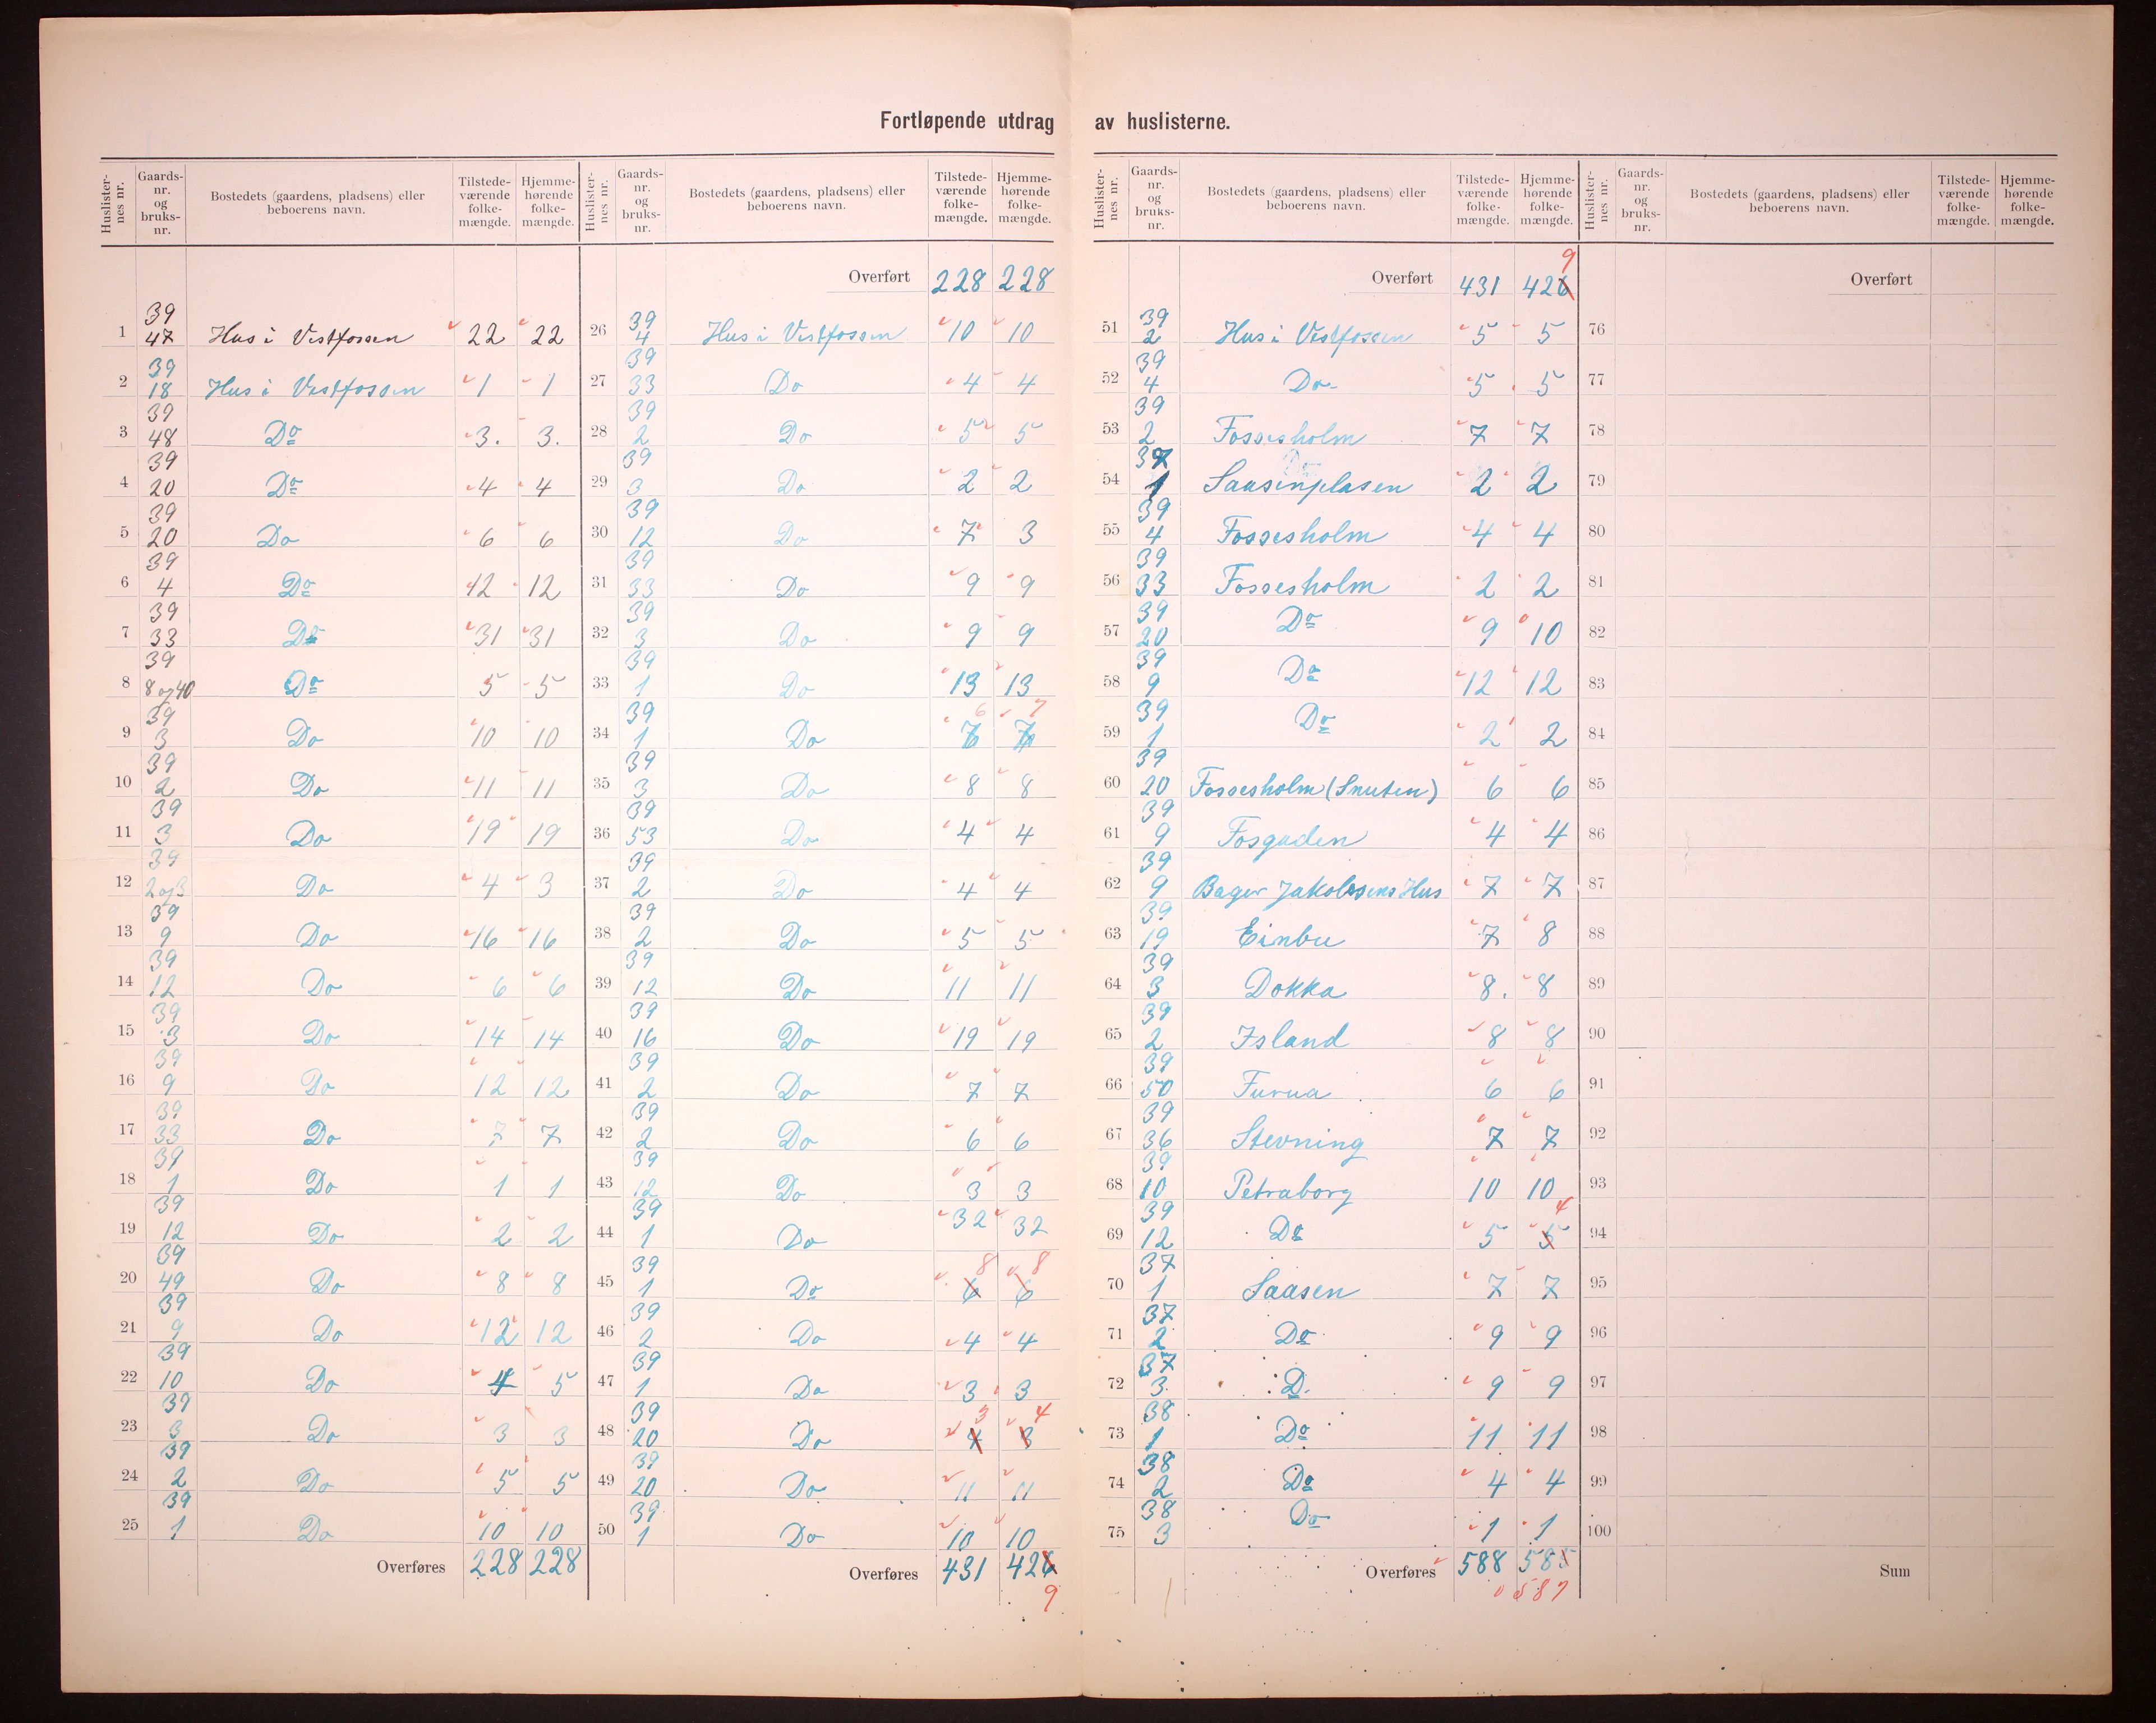 Fortløpende utdrag av huslisterne.
Huslister-nes nr. | Gaards-nr. og bruks-nr. | Bostedets (gaardens, pladsens) eller beboerens navn. | Tilstede-værende folke-mængde. | Hjemme-hørende folke-mængde.
1 39 47 Hus i Vestfossen 22 22
2 39 18 Hus i Vestfossen 1 1
3 39 48 Do 3. 3.
4 39 20 Do 4 4
5 39 20 Do 6 6
6 39 4 Do 12 12
7 39 33 Do 31 31
8 39 8 og 40 Do 5 5
9 39 3 Do 10 10
10 39 2 Do 11 11
11 39 3 Do 19 19
12 39 2 og 3 Do 4 3
13 39 9 Do 16 16
14 39 12 Do 6 6
15 39 3 Do 14 14
16 39 9 Do 12 12
17 39 33 Do 7 7
18 39 1 Do 1 1
19 39 12 Do 2 2
20 39 49 Do 8 8
21 39 9 Do 12 12
22 39 10 Do 4 5
23 39 3 Do 3 3
24 39 2 Do 5 5
25 39 1 Do 10 10
Overføres 228 228
Huslister-nes nr. | Gaards-nr. og bruks-nr. | Bostedets (gaardens, pladsens) eller beboerens navn. | Tilstede-værende folke-mængde. | Hjemme-hørende folke-mængde.
Overført 228 228
26 39 4 Hus i Vestfossen 10 10
27 39 33 Do 4 4
28 39 2 Do 5 5
29 39 3 Do 2 2
30 39 12 Do 7 3
31 39 33 Do 9 9
32 39 3 Do 9 9
33 39 1 Do 13 13
34 39 1 Do 6 7
35 39 3 Do 8 8
36 39 53 Do 4 4
37 39 2 Do 4 4
38 39 2 Do 5 5
39 39 12 Do 11 11
40 39 16 Do 19 19
41 39 2 Do 7 7
42 39 2 Do 6 6
43 39 12 Do 3 3
44 39 1 Do 32 32
45 39 1 Do 6 8 6 8
46 39 2 Do 4 4
47 39 1 Do 3 3
48 39 20 Do 4 3 3 4
49 39 20 Do 11 11
50 39 1 Do 10 10
Overføres 431 426 9
Huslister-nes nr. | Gaards-nr. og bruks-nr. | Bostedets (gaardens, pladsens) eller beboerens navn. | Tilstede-værende folke-mængde. | Hjemme-hørende folke-mængde.
Overført 431 426 9
51 39 2 Hus i Vestfossen 5 5
52 39 4 Do 5 5
53 39 2 Fossesholm 7 7
54 37 1 Saasenplasen 2 2
55 39 4 Fossesholm 4 4
56 39 33 Fossesholm 2 2
57 39 20 Do 9 10
58 39 9 Do 12 12
59 39 1 Do 2 2
60 39 20 Fossesholm (Snuten) 6 6
61 39 9 Fosgaden 4 4
62 39 9 Bager Jakobsens Hus 7 7
63 39 19 Einbu 7 8
64 39 3 Dokka 8. 8
65 39 2 Island 8 8
66 39 50 Furua 6 6
67 39 36 Stevning 7 7
68 39 10 Petraborg 10 10
69 39 12 Do 5 5 4
70 37 1 Saasen 7 7
71 37 2 Do 9 9
72 37 3. D. 9 9
73 38 1 Do 11 11
74 38 2 Do 4 4
75 38 3 Do 1 1
Overføres 588 585
587
Huslister-nes nr. | Gaards-nr. og bruks-nr. | Bostedets (gaardens, pladsens) eller beboerens navn. | Tilstede-værende folke-mængde. | Hjemme-hørende folke-mængde.
Overført
76
77
78
79
80
81
82
83
84
85
86
87
88
89
90
91
92
93
94
95
96
97
98
99
100
Sum